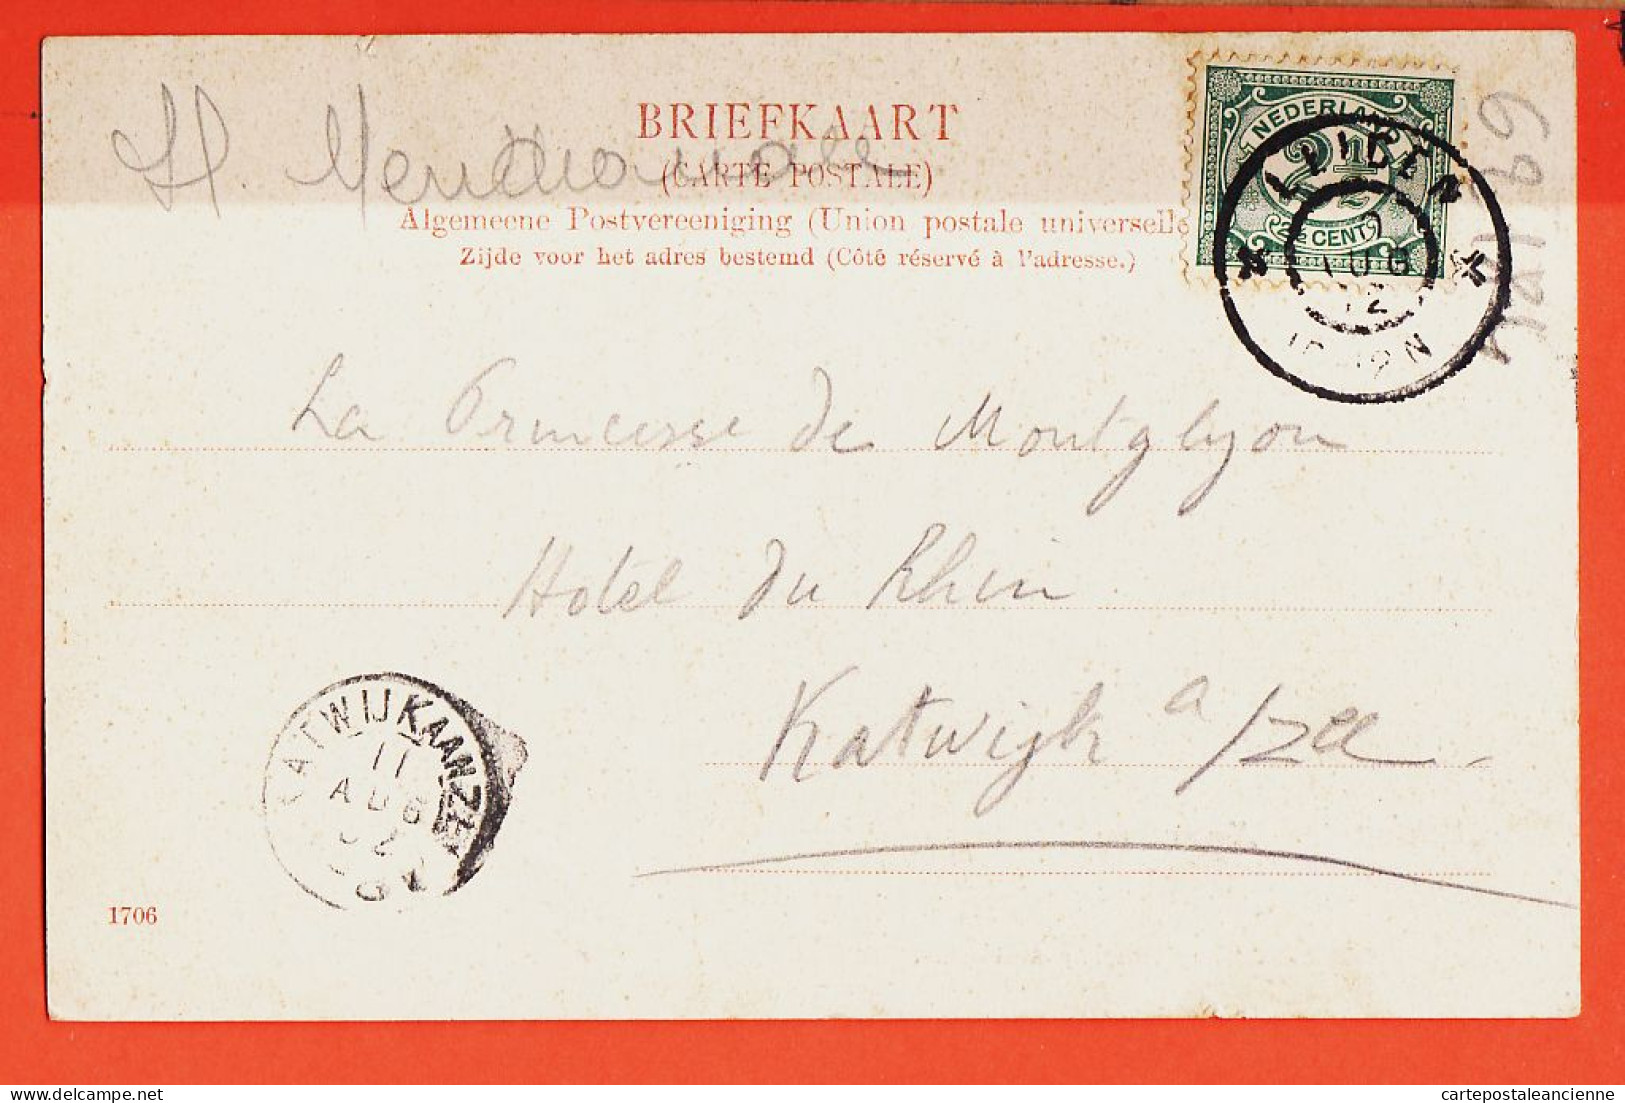 BRIEFKAART
(CARTE POSTALE)
Algemeene Postvereeniging (Union postale universelle
Zijde voor het adres bestemd (Côté réservé à l'adresse.)
NEDERLAND
2½
2½ CENT
LEIDEN
AUG
La Princesse de Montglyon
Hotel du Rhin
Katwijk a/zee
KATWIJK AAN ZEE
11
AUG
02
1706
cartepostaleancienne